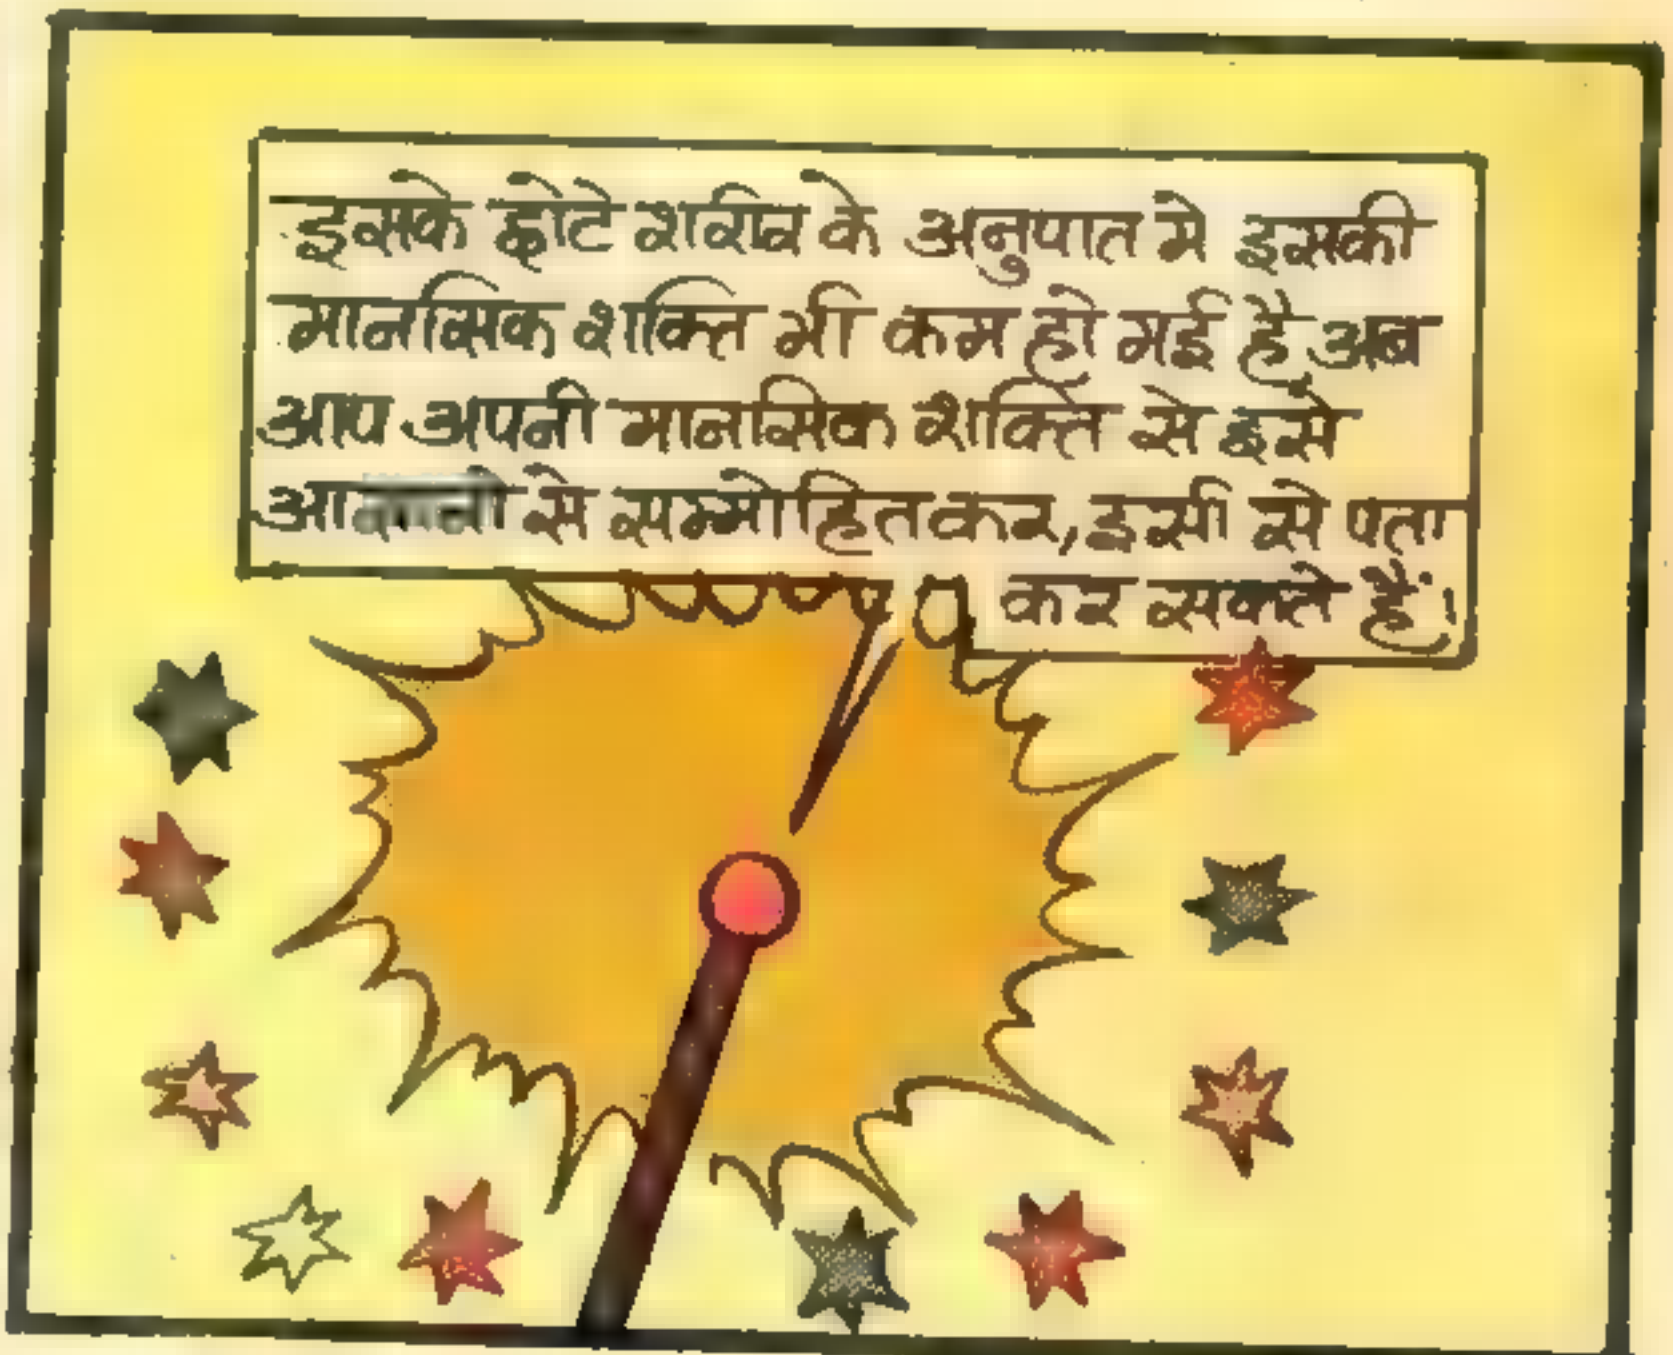 इसके छोटे शरीर के अनुपात मे इसकी
मानसिक शक्ति भी कम हो गई है अब
आप अपनी मानसिक शक्ति से इसे
से सम्मोहित कर, इसी से पता
कर सकते हैं।